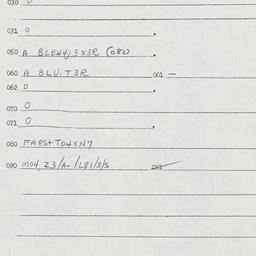 030 0
031 0
050 A BLEW4/3X3R (080
060 A BLU.T3R 061 —
062 0
070 0
071 0
080 FARS+TO4XN7
090 MO4, Z3/A-/L81/3/S 091